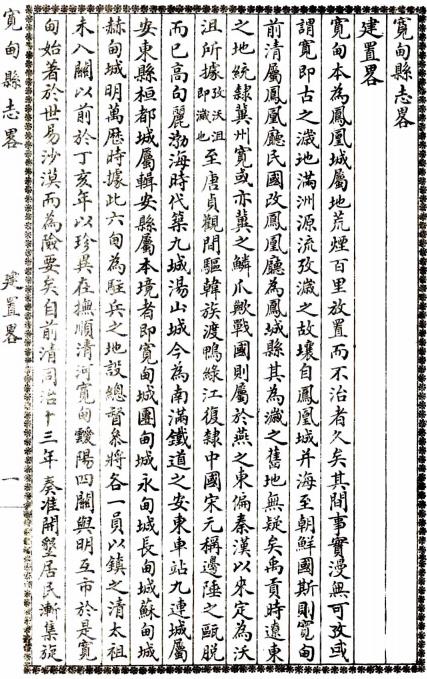 寬甸縣志畧
建置畧
寬甸本為鳳凰城屬地荒煙百里放置而不治者久矣其間事實漫無可攷或
謂寬即古之濊地滿洲源流攷濊之故壤自鳳凰城并海至朝鮮國斯則寬甸
前清屬鳳凰廳民國改鳳凰廳為鳳城縣其為濊之舊地無疑矣禹貢時遼東
之地統隸冀州寬或亦冀之鱗爪歟戰國則屬於燕之東偏秦漢以來定為沃
沮所據攷沃沮即濊也至唐貞觀間驅韓族渡鴨綠江復隸中國宋元稱邊陲之甌脱
而已高句麗渤海時代築九城湯山城今為南滿鐵道之安東車站九連城屬
安東縣桓都城屬輯安縣屬本境者即寬甸城團甸城永甸城長甸城蘇甸城
赫甸城明萬厯時據此六甸為駐兵之地設總督叅將各一員以鎮之清太祖
未入關以前於丁亥年以珍異在撫順清河寬甸靉陽四關與明互市於是寬
甸始著於世易沙漠而為險要矣自前清同治十三年奏准開墾居民漸集旋
寬甸縣志畧
建置畧
一